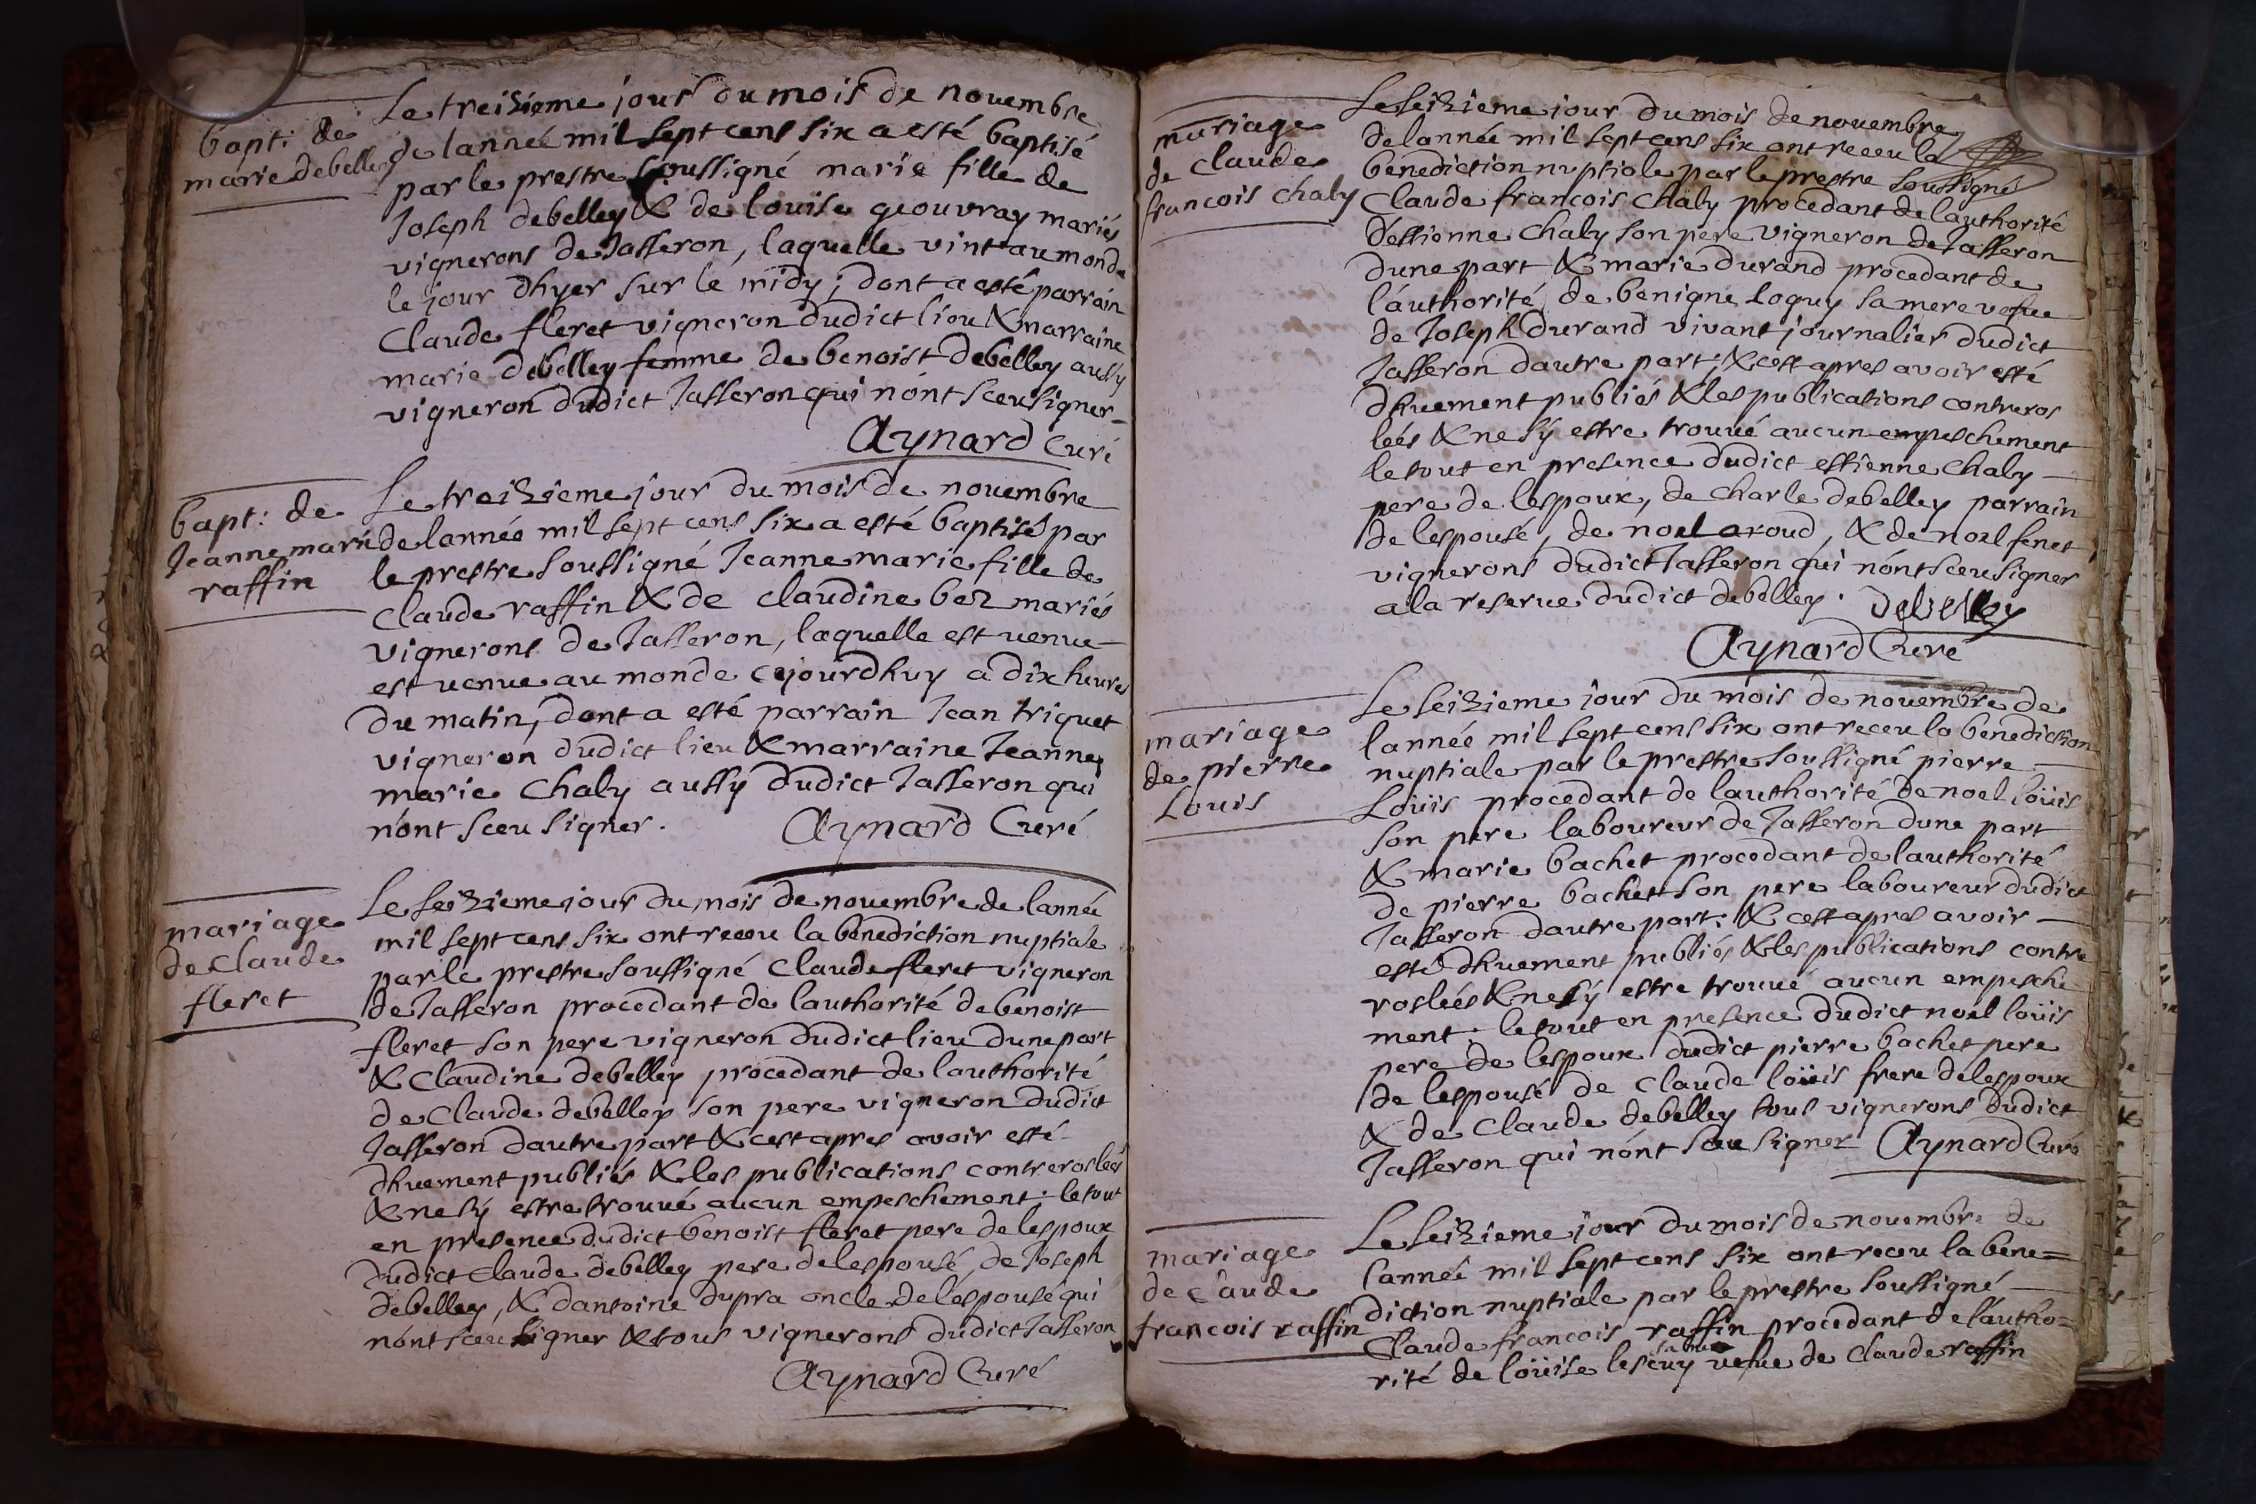 bapt: de
marie debelley
Le treizieme jour du mois de novembre
de lannée mil sept cens six a esté baptisé
par le prestre soussigné marie fille de
Joseph debelley & de loüise geouvray mariés
vignerons de Jasseron, laquelle vint au monde
le jour dhyer sur le midy; dont a esté parrain
Claude fleret vigneron dudict lieu & marraine
marie debelley femme de benoist debelley aussy
vigneron dudict Jasseron qui nónt sceu signer
Aynard Curé
bapt: de
Jeanne marie
raffin
Le treizieme jour du mois de novembre
de lannée mil sept cens six a esté baptisé par
le prestre soussigné Jeanne marie fille de
Claude raffin & de claudine bez mariés
vignerons de Jasseron, laquelle est venue
est venue au monde cejourdhuy a dix heures
du matin, dont a esté parrain Jean triquet
vigneron dudict lieu & marraine Jeanne
marie Chaby aussy dudict Jasseron qui
nónt sceu signer. Aynard Curé
mariage
de Claude
fleret
Le seizieme jour du mois de novembre de lannée
mil sept cens six ont receu la benediction nuptiale
par le prestre soussigné Claude fleret vigneron
de Jasseron procedant de lauthorité de benoist
fleret son pere vigneron dudict lieu dune part
& Claudine debelley procedant de lauthorité
de Claude debelley son pere vigneron dudict
Jasseron dautre part & cest apres avoir esté
dhuement publiés & les publications controslées
& ne sÿ estre trouvé aucun empeschement; le tout
en presence dudict benoist fleret pere de lespoux
dudict Claude debelley pere de lespousé, de Joseph
debelley, & dantoine dupra oncle de léspousé qui
nónt sceu signer & tous vignerons dudict Jasseron
Aynard Curé
mariage
de Claude
francois Chaby
Le seizieme jour du mois de novembre
de lannée mil sept cens six ont receu la
benediction nuptiale par le prestre soussigné
Claude francois Chaby procedant de lauthorité
déstienne Chaby son pere vigneron de Jasseron
dune part & marie durand procedant de
láuthorité de benigne loquy sa mere vefue
de Joseph durand vivant journalier dudict
Jasseron dautre part; & cest apres avoir esté
dhuement publiés & les publications contreros
lées & ne sÿ estre trouvé aucun empeschement
le tout en presence dudict estienne Chaby
pere de lespoux, de Charle debelley parrain
de lespousé, de noel aroud, & de noel feret
vignerons dudict Jasseron qui nónt sceu signer
a la reserve dudict debelley. debelley
Aynard Curé
mariage
de pierre
Louis
Le seizieme jour du mois de novembre de
lannée mil sept cens six ont receu la benediction
nuptiale par le prestre soussigné pierre
Loüis procedant de lauthorité de noel loüis
son pere laboureur de Jasseron dune part
& marie bachet procedant de lauthorité
de pierre bachet son pere laboureur dudict
Jasseron dautre part: & cest apres avoir
esté dhuement publiés & les publications contre
roslées & ne sÿ estre trouvé aucun empesche
ment; le tout en presence dudict noel loüis
pere de lespoux dudict pierre bachet pere
de lespousé de Claude loüis frere de lespoux
& de Claude debelley tous vignerons dudict
Jasseron qui nónt sceu signer Aynard Curé
mariage
de Claude
francois raffin
Le seizieme jour du mois de novembre de
lannée mil sept cens six ont receu la bene=
diction nuptiale par le prestre soussigné
Claude francois raffin procedant de láutho=
rité de loüise lescuy vefue de Claude raffin